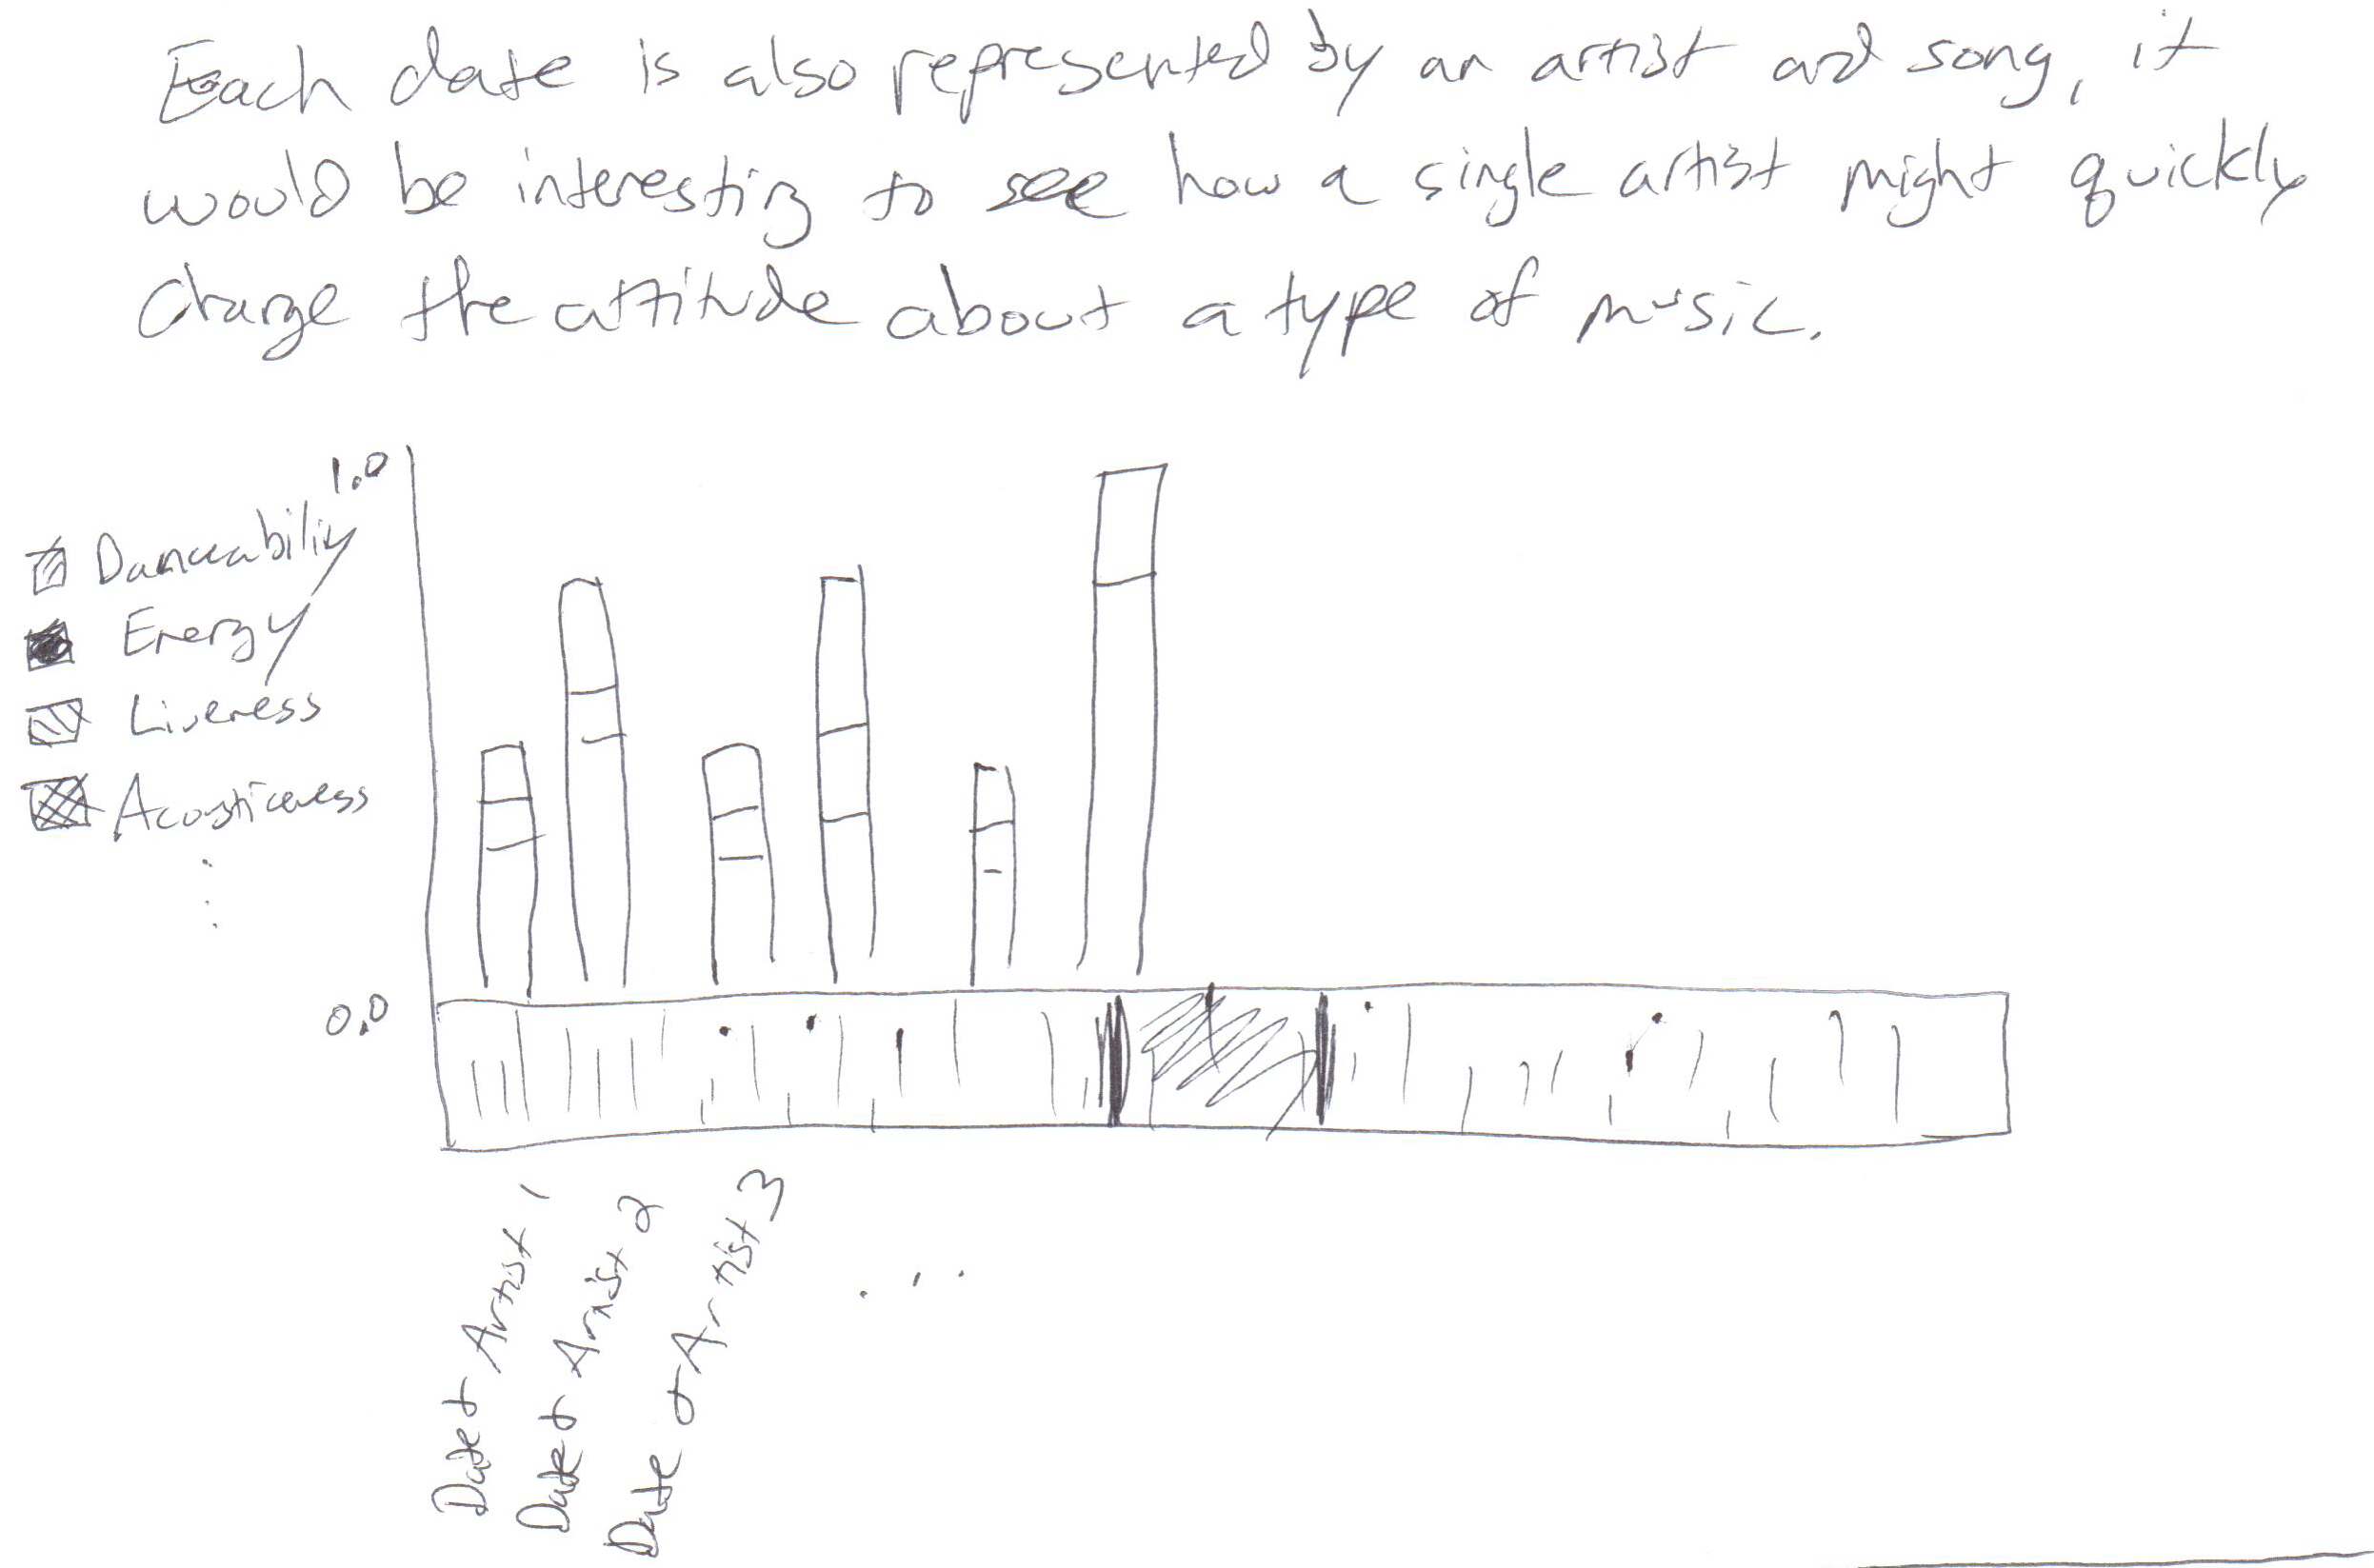 Each date is also represented by an artist and song, it
would be interesting to see how a single artist might quickly
change the attitude about a type of music.
1.0
Danceability
Energy
Liveness
Acousticness
0.0
Date + Artist 1
Date + Artist 2
Date + Artist 3
...